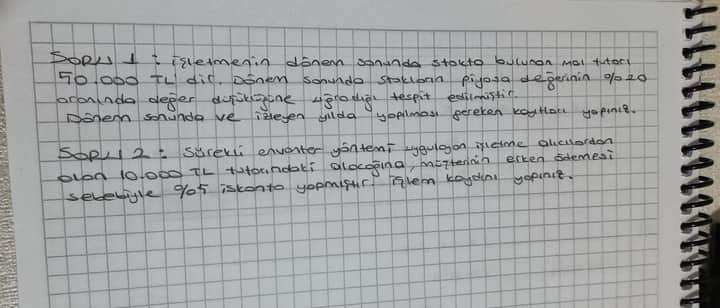 SORU 1 : işletmenin dönem sonunda stokta bulunan mal tutarı
50.000 TL dir. Dönem sonunda stokların piyasa değerinin %20
oranında değer düşüklüğüne uğradığı tespit edilmiştir.
Dönem sonunda ve izleyen yılda yapılması gereken kayıtları yapınız.
SORU 2 : Sürekli envanter yöntemi uygulayan işletme alıcılardan
olan 10.000 TL tutarındaki alacağına, müşterinin erken ödemesi
sebebiyle %5 iskonto yapmıştır. işlem kaydını yapınız.